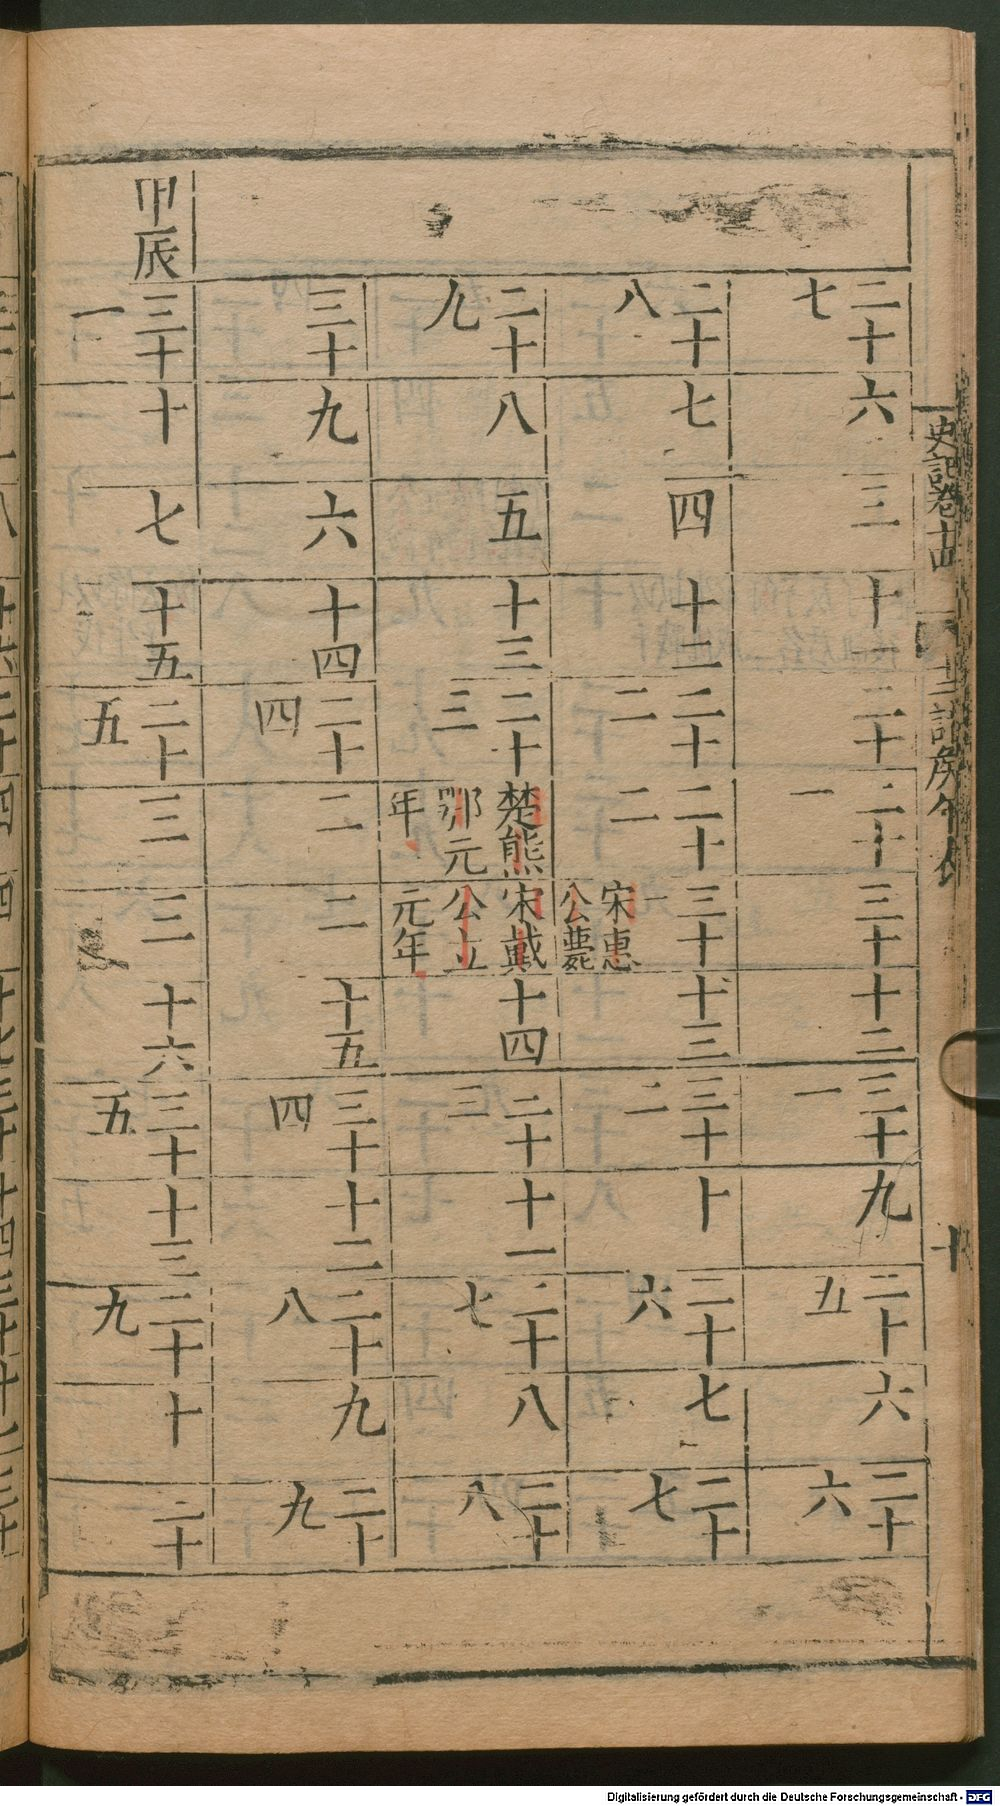 史記卷十四
十二諸侯年表
十
二十七
六
三
十一
二十一
二十一
三十
十二
三十一
九
二十五
六
二十六
二十八
七
四
十二
二十二
二十二
三十一宋惠公薨
十三
三十二
十
二十六
七
二十七
二十九
八
五
十三
二十三
楚熊鄂元年
宋戴公立元年
十四
三十三
十一
二十七
八
二十八
三十
九
六
十四
二十四
二
二
十五
三十四
十二
二十八
九
二十九
甲辰
三十一
十
七
十五
二十五
三
三
十六
三十五
十三
二十九
十
三十
Digitalisierung gefördert durch die Deutsche Forschungsgemeinschaft - DFG